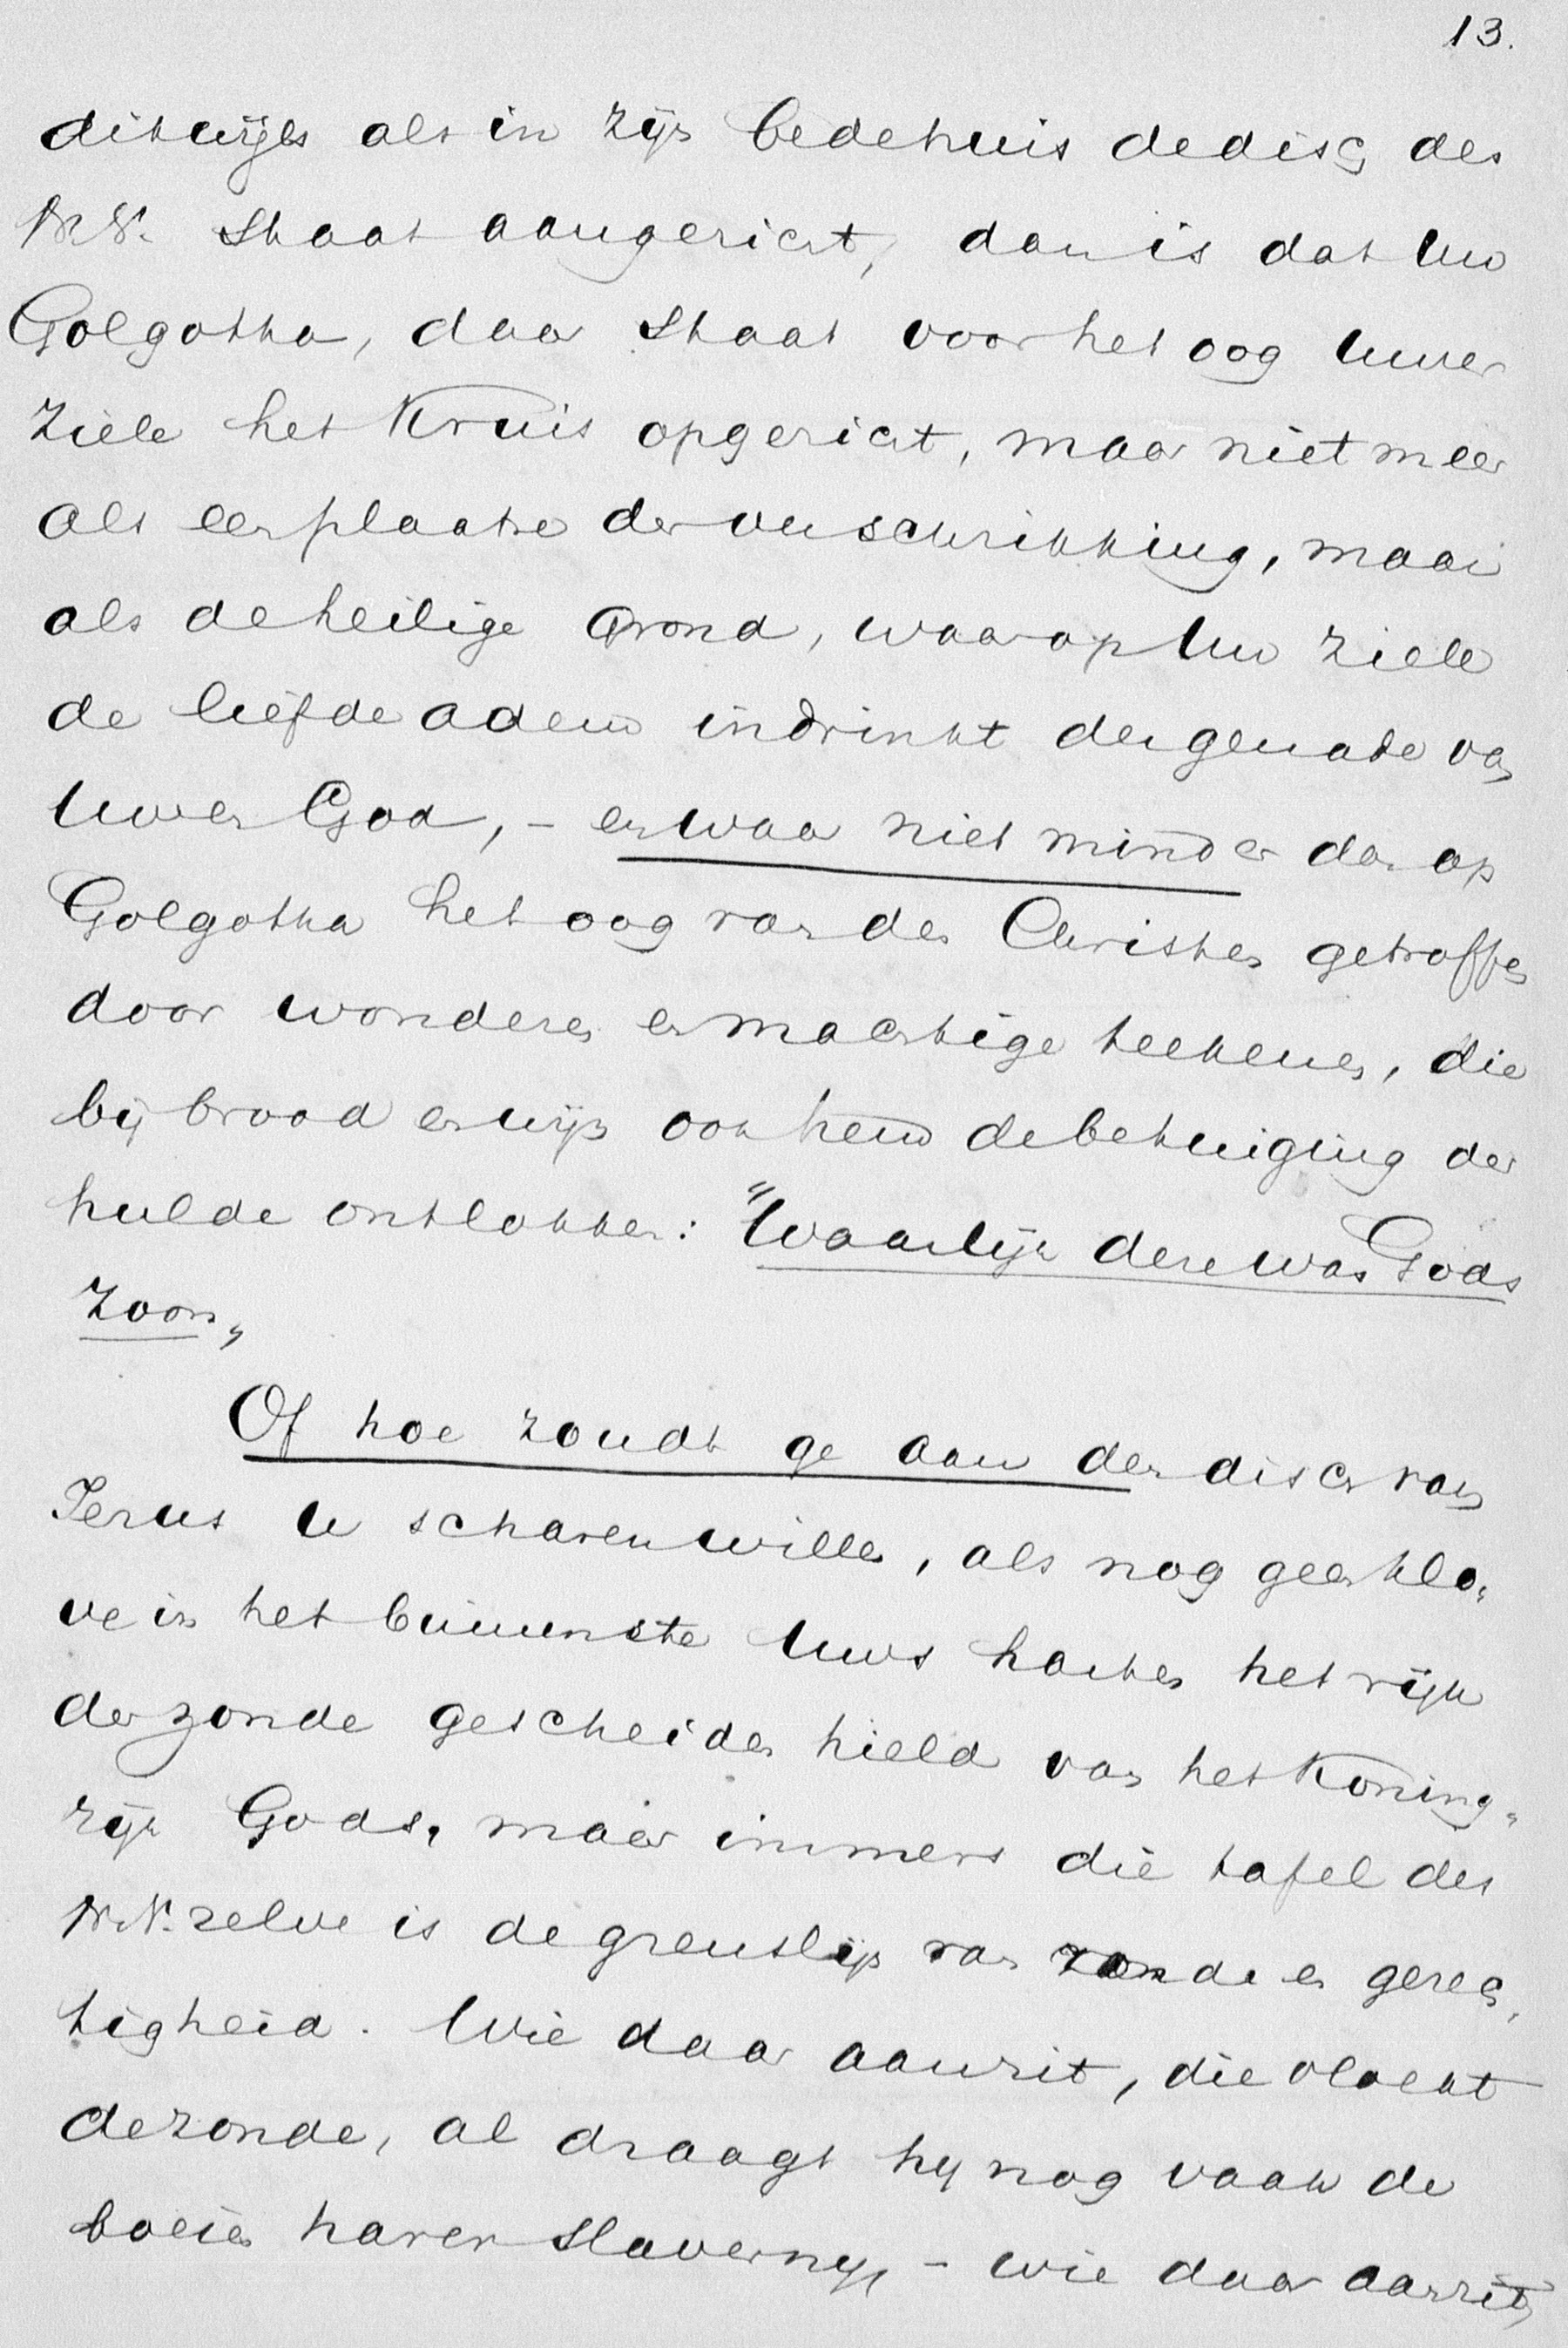 13.
dikwijls als in zijn bedehuis de disch des
N.V. staat aangericht, dan is dat Uw
Golgotha, daar staat voor het oog Uwer
ziele het Kruis opgericht, maar niet meer
als een plaatse der verschrikking, maar
als de heilige grond, waarop Uw ziele
de liefde adem indrinkt der genade van
Uwen God, - en waar niet minder dan op
Golgotha het oog van den Christen getroffen
door wonderen en machtige teekenen, die
bij brood en wijn ook hem de betuiging der
hulde ontlokken: "Waarlijk deze was Gods
Zoon„
Of hoe zoudt ge aan den disch van
Jezus U scharen willen, als nog geen klo„
ve in het binnenste Uws harten het rijk
der zonde gescheiden hield van het Koning„
rijk Gods, maar immers die tafel des
N.V. zelve is de grenslijn van zonde en gerech„
tigheid. Wie daar aanzit, die vloekt
de zonde, al draagt hij nog vaak de
boeien harer slavernij, - wie daar aanzit,